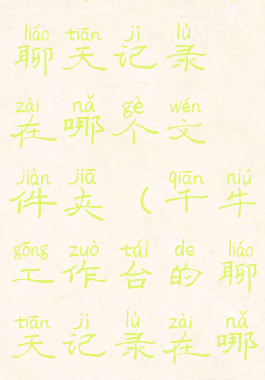 liáo tiān jì lù
聊天记录
zài nǎ gè wén
在哪个文
jiàn jiā qiān niú
件夹（千牛
gōng zuò tái de liáo
工作台的聊
tiān jì lù zài nǎ
天记录在哪